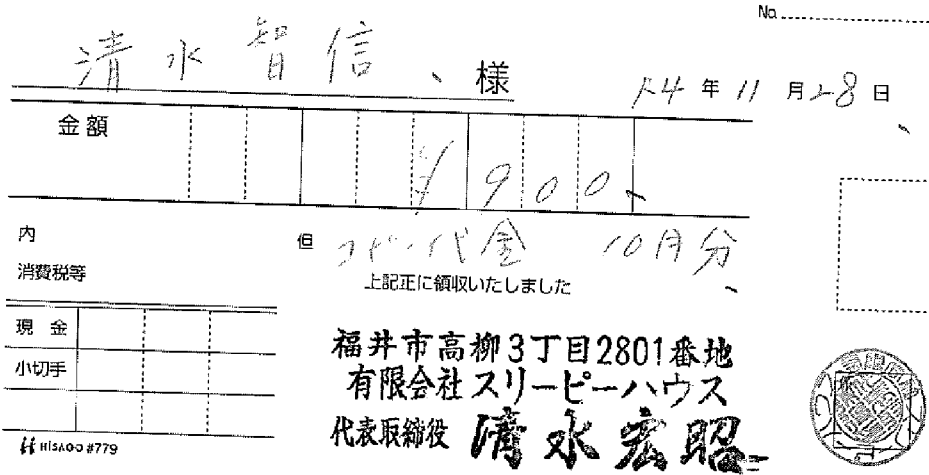 No.
清水智信 様
R4年11月28日
金額 ¥900
内
但 コピー代金 10月分
消費税等
上記正に領収いたしました
現金
小切手
福井市高柳3丁目2801番地
有限会社スリーピーハウス
代表取締役 清水宏昭
HISAGO #779